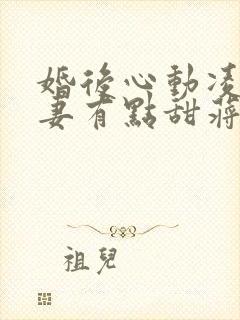 婚後心動凌
妻有點甜蔣
祖兒